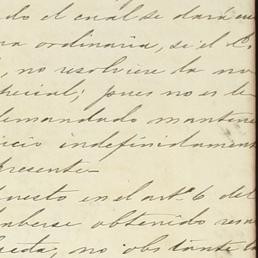 do el cual se dará cu
ra ordinaria, si el
, no resolviere la no
pecial; pues no es le
demandado mantene
icio indefinidament
presente
puesto en el art.º 6 del
aberse obtenido
no obstante la